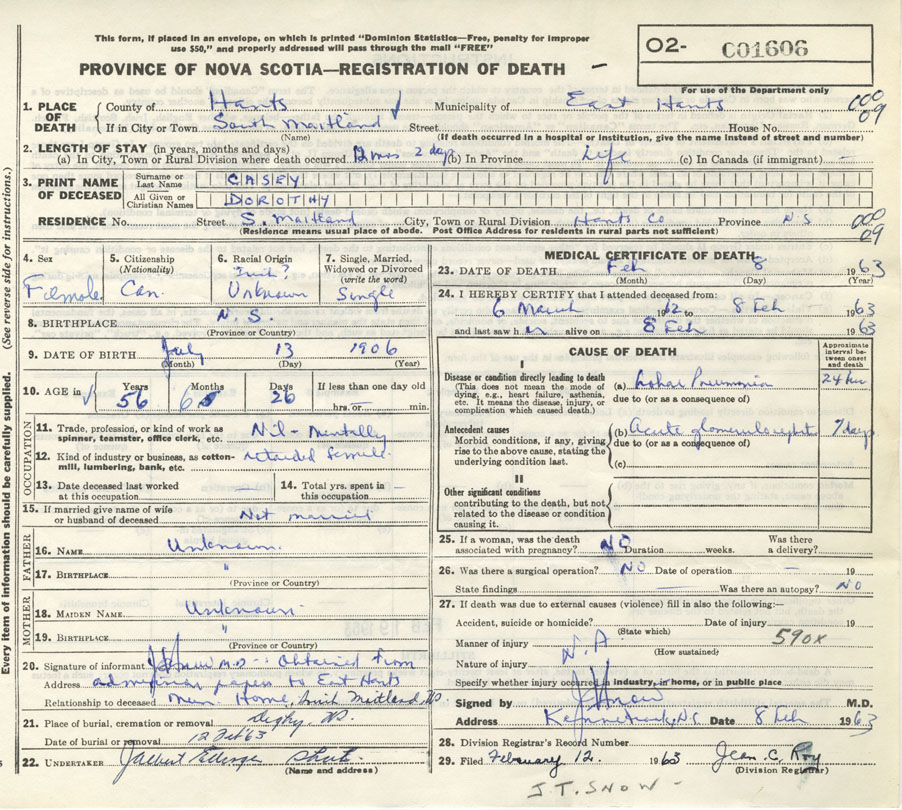 This form, if placed in an envelope, on which is printed "Dominion Statistics—Free, penalty for improper
use $50," and properly addressed will pass through the mail "FREE"
O2- C01606
For use of the Department only
PROVINCE OF NOVA SCOTIA—REGISTRATION OF DEATH
1. PLACE OF DEATH { County of Hants Municipality of East Hants
If in City or Town South Maitland Street House No.
(Name) (If death occurred in a hospital or institution, give the name instead of street and number)
000
09
2. LENGTH OF STAY (in years, months and days)
(a) In City, Town or Rural Division where death occurred 2 days (b) In Province Life (c) In Canada (if immigrant) —
3. PRINT NAME OF DECEASED { Surname or Last Name CASEY
All Given or Christian Names DOROTHY
RESIDENCE No. Street S. Maitland City, Town or Rural Division Hants Co Province N.S
(Residence means usual place of abode. Post Office Address for residents in rural parts not sufficient)
000
09
(See reverse side for instructions.)
Every item of information should be carefully supplied.
4. Sex Female
5. Citizenship (Nationality) Can.
6. Racial Origin Irish? Unknown
7. Single, Married, Widowed or Divorced (write the word) Single
8. BIRTHPLACE N.S.
(Province or Country)
9. DATE OF BIRTH July 13 1906
(Month) (Day) (Year)
10. AGE in Years 56 Months 6 Days 26 If less than one day old
hrs. or min.
OCCUPATION
11. Trade, profession, or kind of work as spinner, teamster, office clerk, etc. Nil - Mentally
12. Kind of industry or business, as cotton-mill, lumbering, bank, etc. retarded female
13. Date deceased last worked at this occupation —
14. Total yrs. spent in this occupation —
15. If married give name of wife or husband of deceased Not married
FATHER
16. NAME Unknown.
17. BIRTHPLACE "
(Province or Country)
MOTHER
18. MAIDEN NAME Unknown
19. BIRTHPLACE "
(Province or Country)
20. Signature of informant JTSnow M.D - Obtained from
Address admission papers to East Hants
Relationship to deceased Mun. Home, South Maitland, NS
21. Place of burial, cremation or removal Digby, NS.
Date of burial or removal 12 Feb 63
22. UNDERTAKER
(Name and address)
MEDICAL CERTIFICATE OF DEATH
23. DATE OF DEATH Feb 8 1963
(Month) (Day) (Year)
24. I HEREBY CERTIFY that I attended deceased from:
6 March 1962 to 8 Feb 1963
and last saw her alive on 8 Feb 1963
CAUSE OF DEATH
Approximate interval between onset and death
I
Disease or condition directly leading to death
(This does not mean the mode of dying, e.g., heart failure, asthenia, etc. It means the disease, injury, or complication which caused death.)
(a) Lobar Pneumonia 24 hrs
due to (or as a consequence of)
Antecedent causes
Morbid conditions, if any, giving rise to the above cause, stating the underlying condition last.
(b) Acute glomerulonephritis 7 days
due to (or as a consequence of)
(c)
II
Other significant conditions
contributing to the death, but not related to the disease or condition causing it.
25. If a woman, was the death associated with pregnancy? NO Duration weeks. Was there a delivery?
26. Was there a surgical operation? NO Date of operation — 19
State findings Was there an autopsy? NO
27. If death was due to external causes (violence) fill in also the following:—
Accident, suicide or homicide? Date of injury 19
(State which)
Manner of injury N.A. 590x
(How sustained)
Nature of injury
Specify whether injury occurred in industry, in home, or in public place
Signed by JTSnow M.D.
Address Kennetcook, N.S. Date 8 Feb 1963
28. Division Registrar's Record Number
29. Filed February 12 1963 Jean C. Roy
(Division Registrar)
J.T. SNOW -